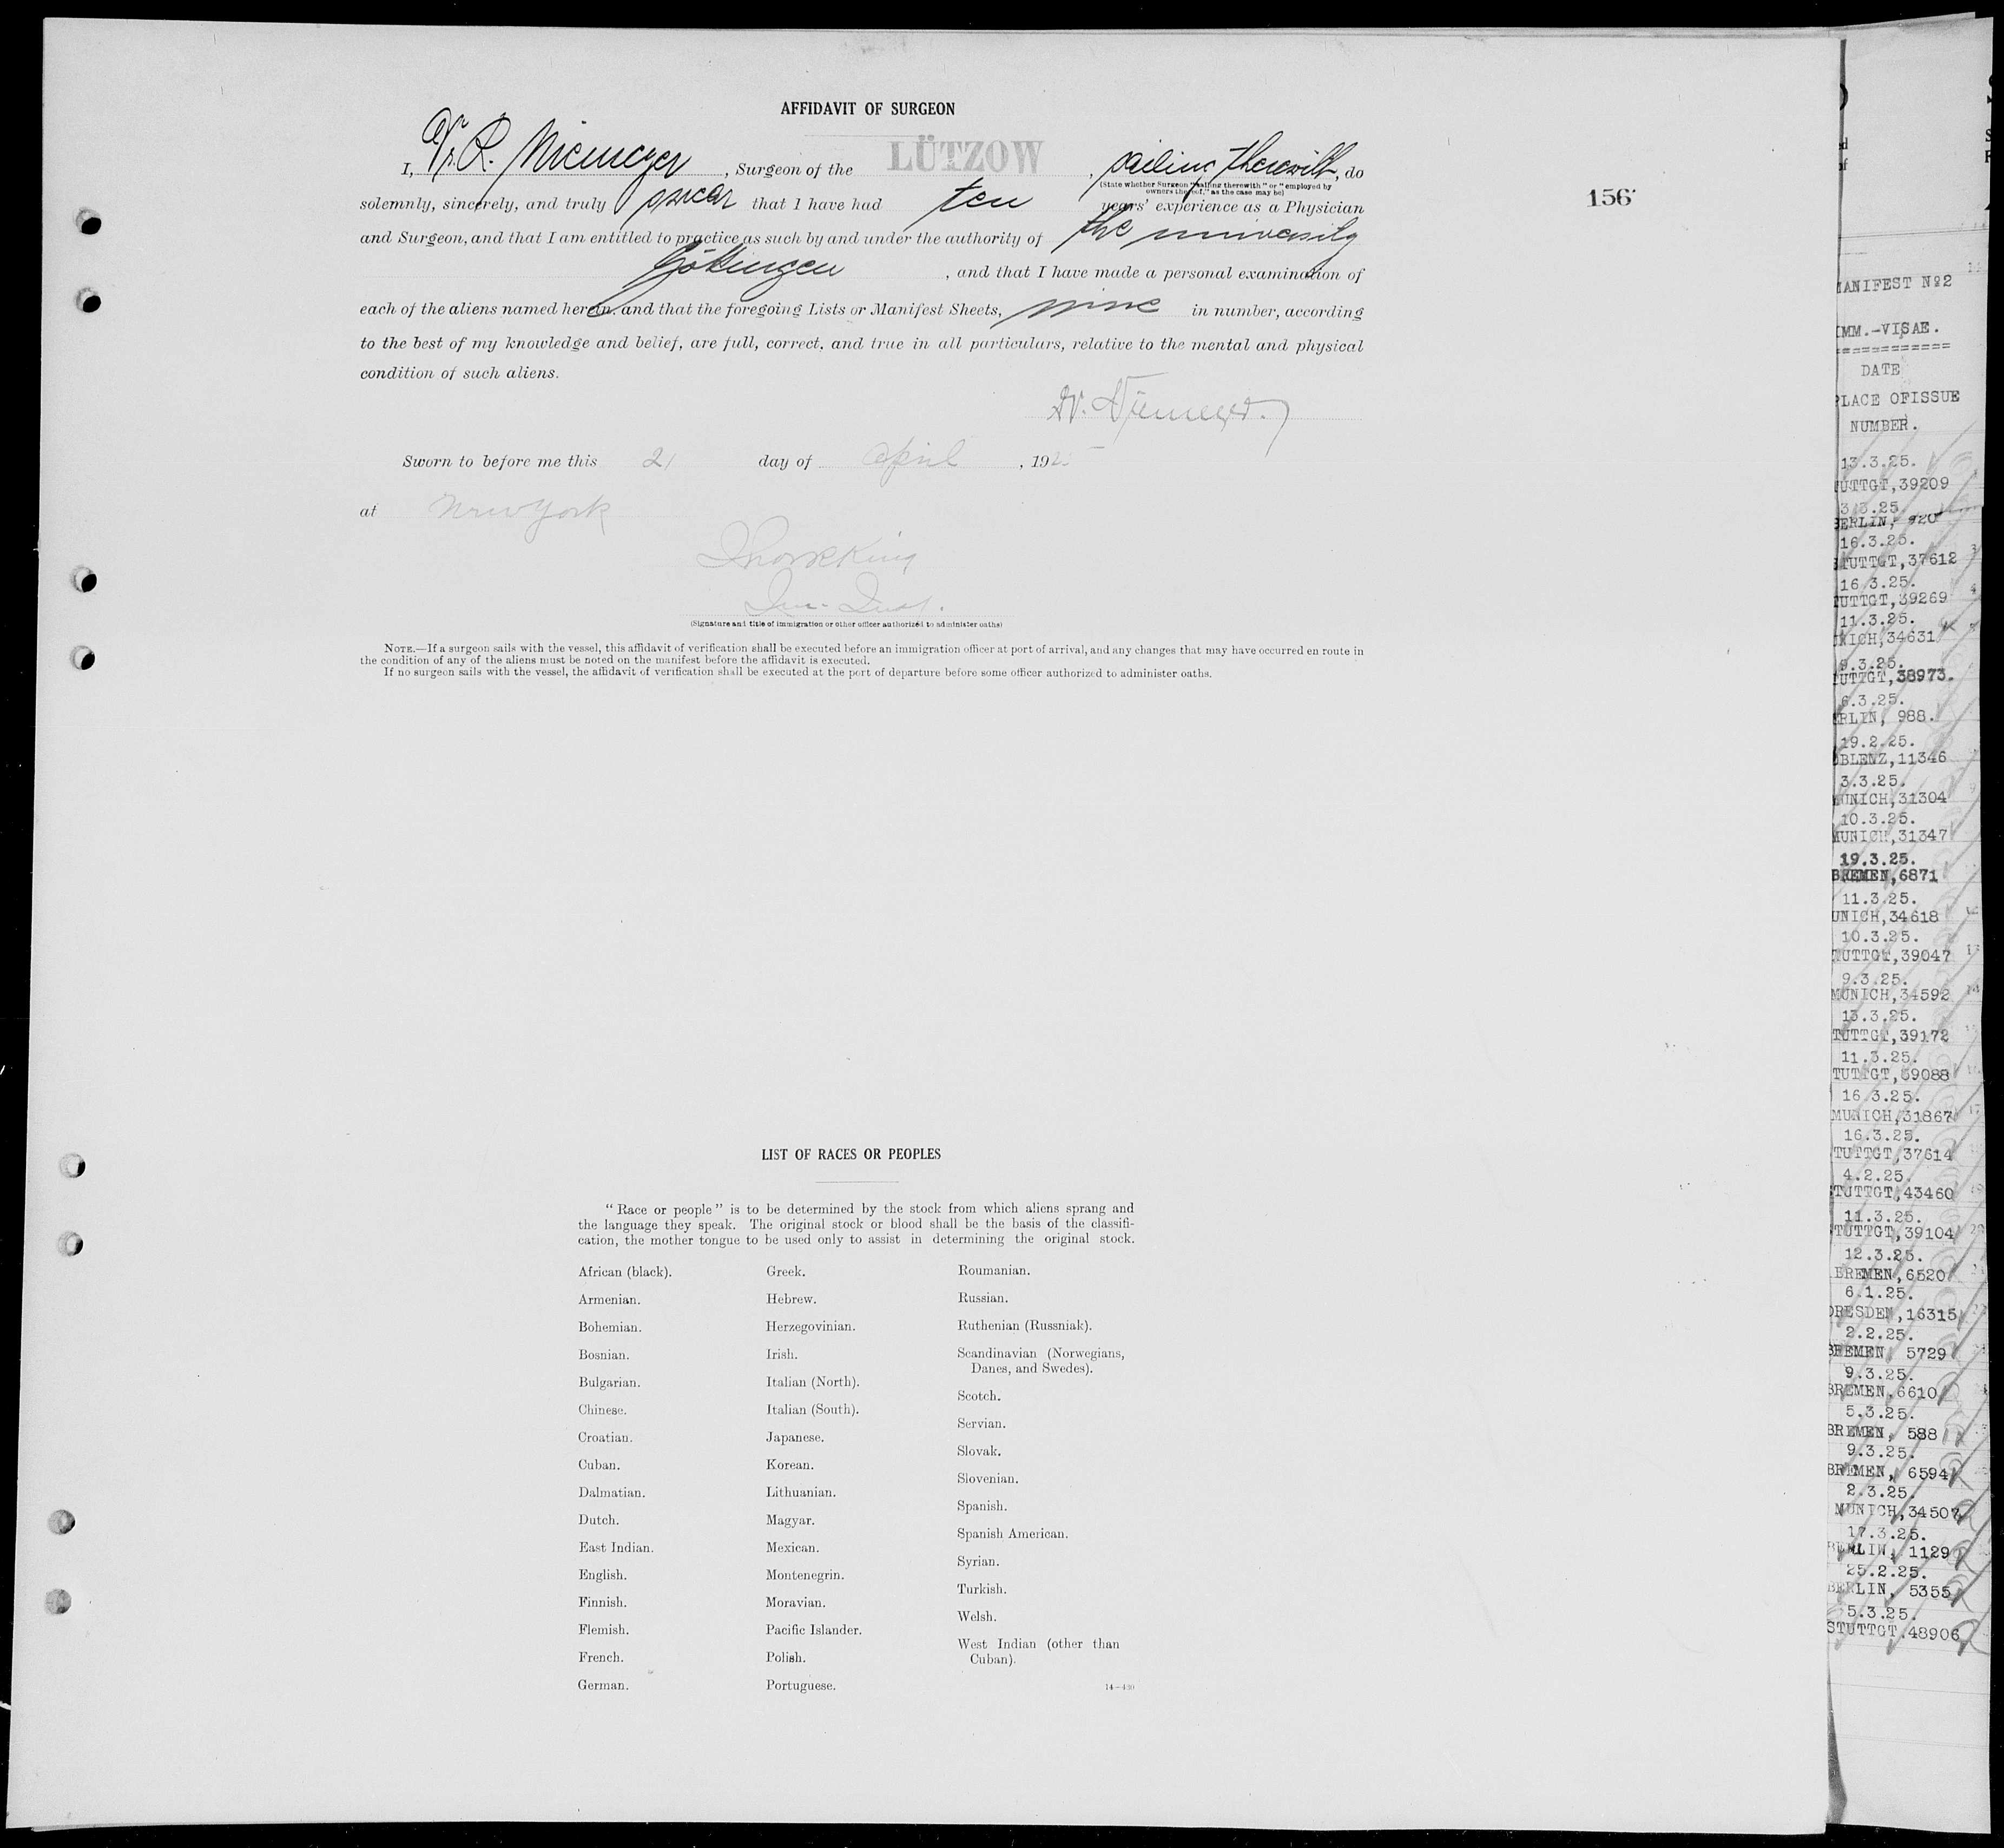 AFFIDAVIT OF SURGEON
I, Dr. R. Niemeyer, Surgeon of the LÜTZOW, sailing therewith, do
(State whether Surgeon "sailing therewith" or "employed by
owners thereof," as the case may be)
156
solemnly, sincerely, and truly swear that I have had ten years' experience as a Physician
and Surgeon, and that I am entitled to practice as such by and under the authority of the university
Göttingen, and that I have made a personal examination of
each of the aliens named herein and that the foregoing Lists or Manifest Sheets, nine in number, according
to the best of my knowledge and belief, are full, correct, and true in all particulars, relative to the mental and physical
condition of such aliens.
Dr. Niemeyer.
Sworn to before me this 21 day of April, 1925
at New York
(Signature and title of immigration or other officer authorized to administer oaths)
NOTE.—If a surgeon sails with the vessel, this affidavit of verification shall be executed before an immigration officer at port of arrival, and any changes that may have occurred en route in
the condition of any of the aliens must be noted on the manifest before the affidavit is executed.
If no surgeon sails with the vessel, the affidavit of verification shall be executed at the port of departure before some officer authorized to administer oaths.
LIST OF RACES OR PEOPLES
"Race or people" is to be determined by the stock from which aliens sprang and
the language they speak. The original stock or blood shall be the basis of the classifi-
cation, the mother tongue to be used only to assist in determining the original stock.
African (black).
Armenian.
Bohemian.
Bosnian.
Bulgarian.
Chinese.
Croatian.
Cuban.
Dalmatian.
Dutch.
East Indian.
English.
Finnish.
Flemish.
French.
German.
Greek.
Hebrew.
Herzegovinian.
Irish.
Italian (North).
Italian (South).
Japanese.
Korean.
Lithuanian.
Magyar.
Mexican.
Montenegrin.
Moravian.
Pacific Islander.
Polish.
Portuguese.
Roumanian.
Russian.
Ruthenian (Russniak).
Scandinavian (Norwegians,
Danes, and Swedes).
Scotch.
Servian.
Slovak.
Slovenian.
Spanish.
Spanish American.
Syrian.
Turkish.
Welsh.
West Indian (other than
Cuban).
14—430
ANIFEST №2
IMM.-VISAE.
============
DATE
PLACE OFISSUE
NUMBER.
13.3.25.
UTTGT,39209
3.3.25.
BERLIN, 920
16.3.25.
TUTTGT,37612
16.3.25.
UTTGT,39269
11.3.25.
NICH,34631
9.3.25.
UTTGT,38973.
6.3.25.
RLIN, 988.
19.2.25.
OBLENZ,11346
3.3.25.
MUNICH,31304
10.3.25.
MUNICH,31347
19.3.25.
BREMEN,6871
11.3.25.
UNICH,34618
10.3.25.
TUTTGT,39047
9.3.25.
MUNICH,34592
13.3.25.
TUTTGT,39172
11.3.25.
TUTTGT,39088
16.3.25.
MUNICH,31867
16.3.25.
TUTTGT,37614
4.2.25.
STUTTGT,43460
11.3.25.
STUTTGT,39104
12.3.25.
BREMEN,6520
6.1.25.
DRESDEN,16315
2.2.25.
BREMEN, 5729
9.3.25.
BREMEN,6610
5.3.25.
BREMEN, 588
9.3.25.
BREMEN, 6594
2.3.25.
MUNICH,34507
17.3.25.
BERLIN, 1129
25.2.25.
BERLIN, 5355
5.3.25.
STUTTGT.48906